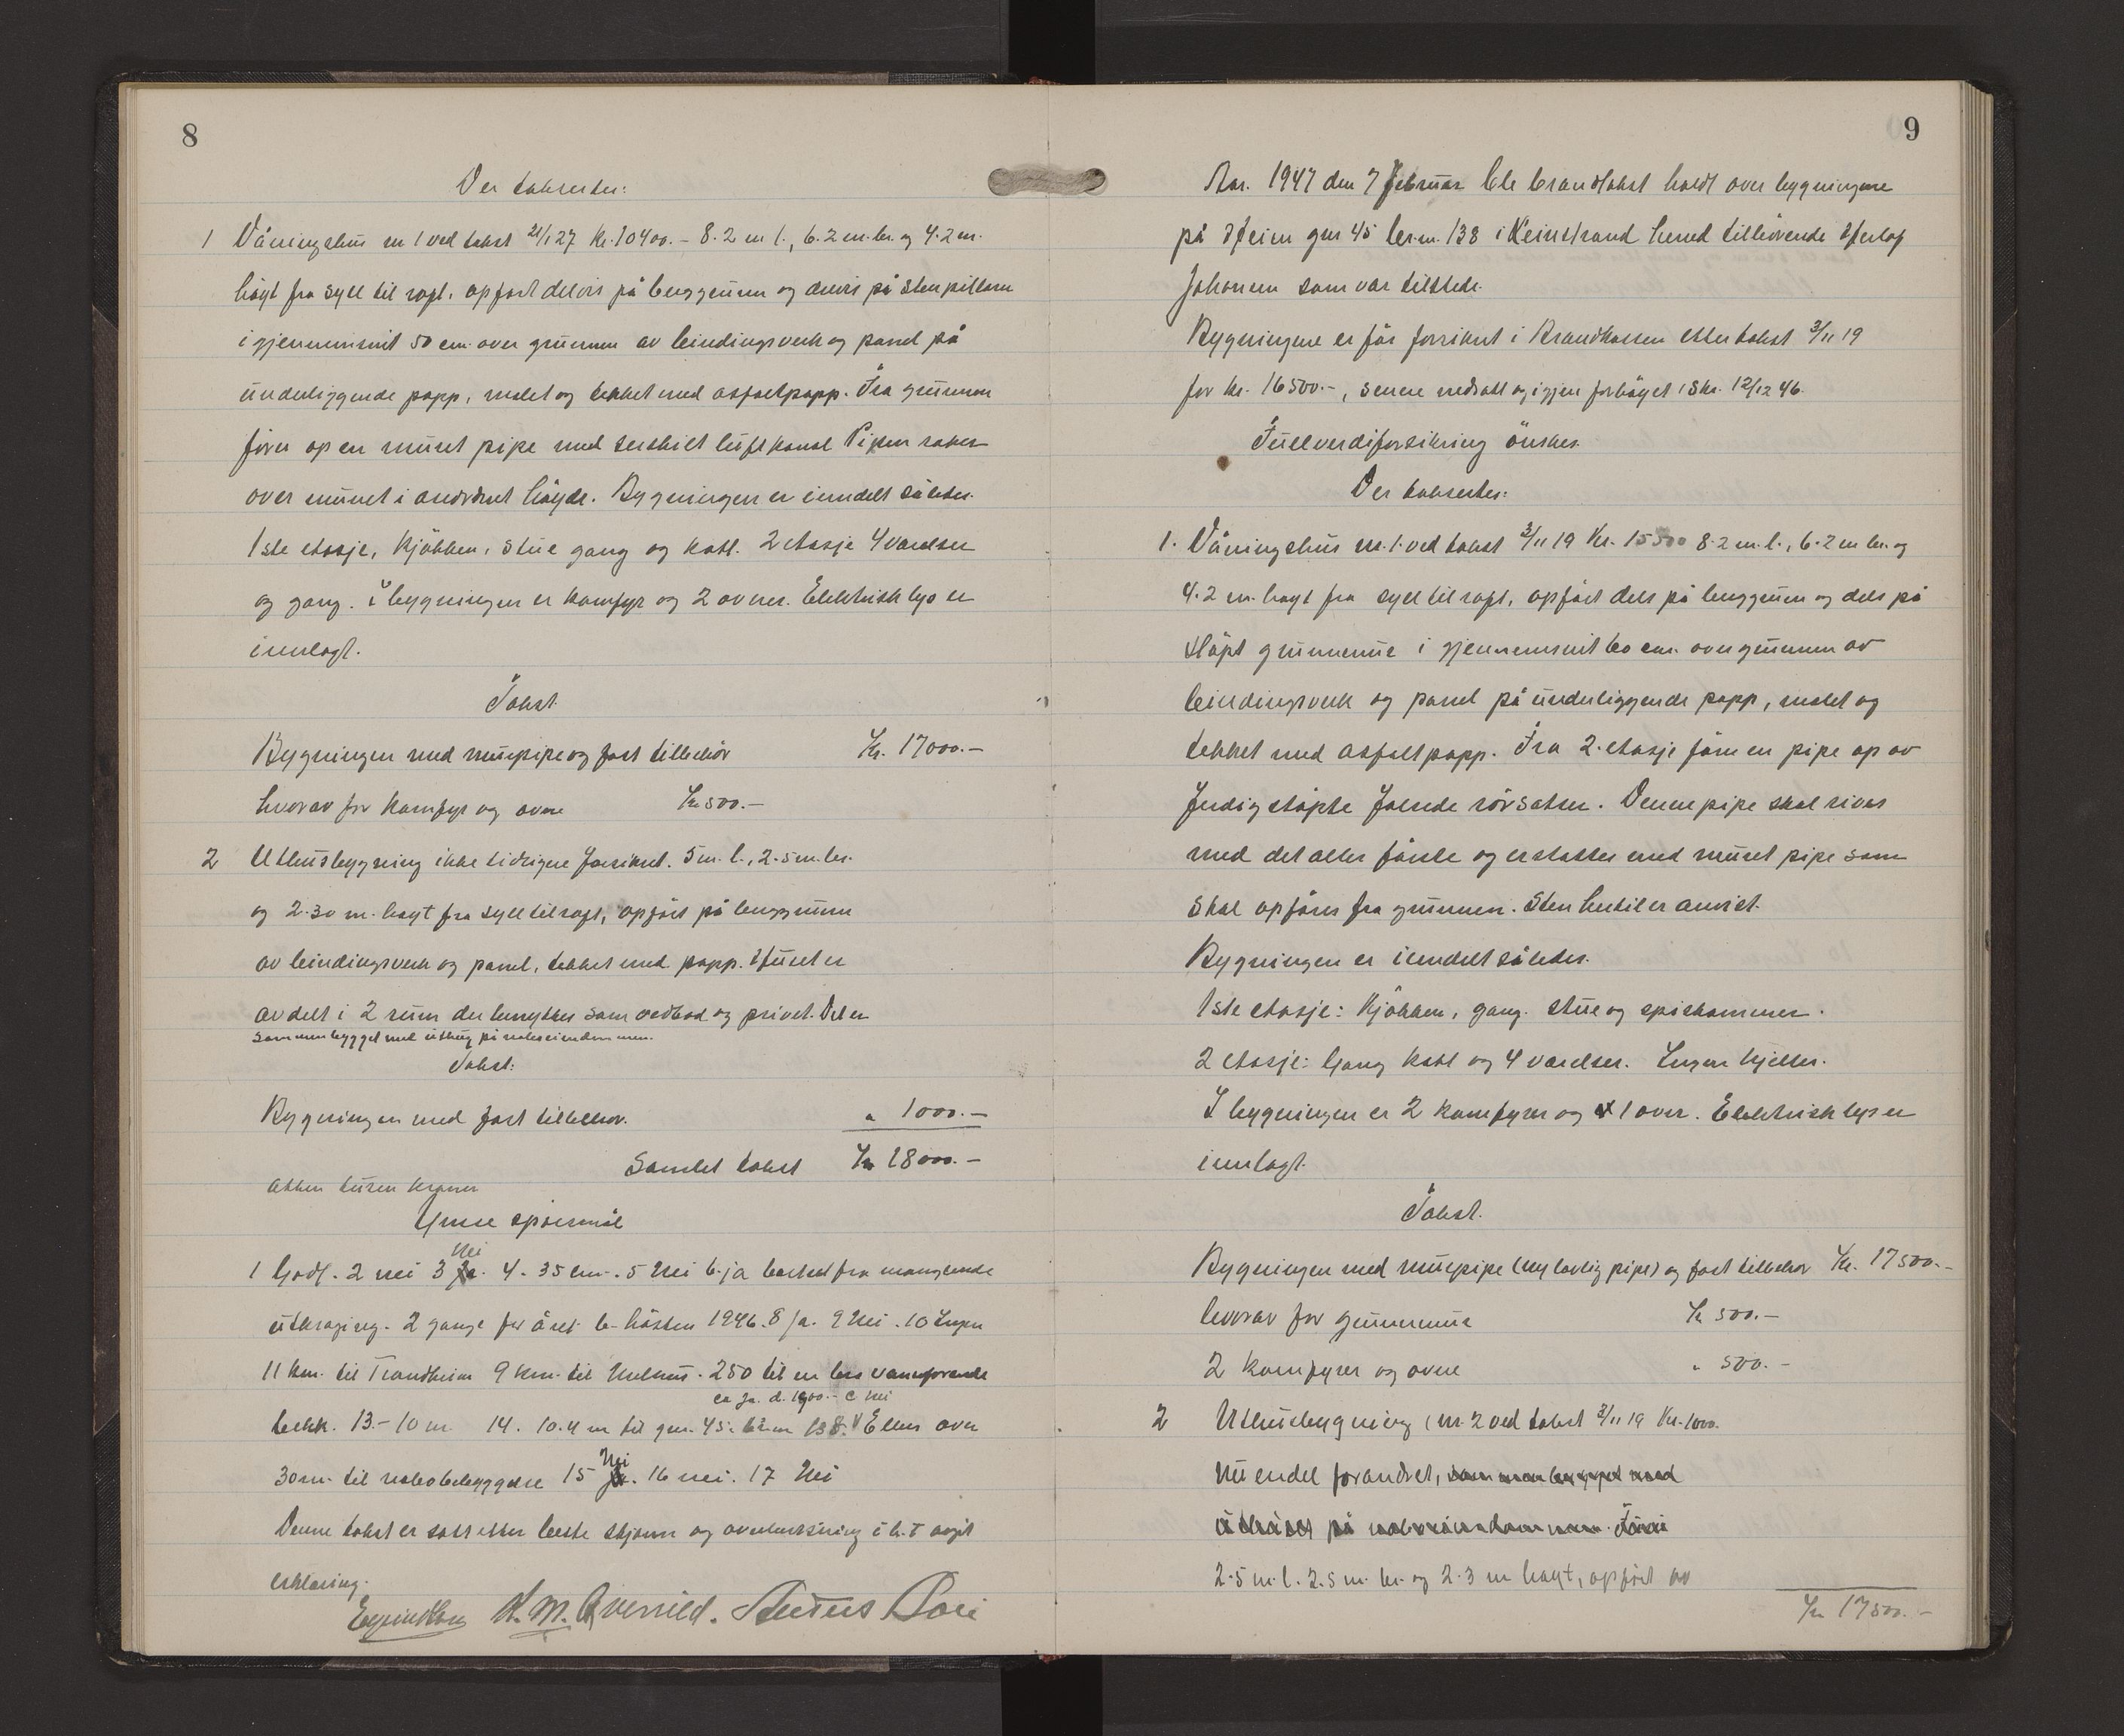 8
Der takserter:
1 Våningshus nr 1 ved takst 21/1 27 Kr. 10400.- 8.2 m l., 6.2 m. br. og 4.2 m.
høyt fra syll til raft, opført delvis på berggrunn og delvis på stenpillarer
i gjennemsnit 50 cm. over grunnen av bindingsverk og panel på
underliggende papp, malet og tekket med asfaltpapp. Fra grunnen
fører op en muret pipe med serskilt luftkanal Pipen raker
over mønet i anordnet høyde. Bygningen er inndelt således.
1ste etasje, Kjøkken, stue gang og kott. 2 etasje 4 værelser
og gang. i bygningen er komfyr og 2 ovner. Elektrisk lys er
innlagt.
Takst.
Bygningen med murpipe og fast tilbehör Kr. 17000.-
hvorav for komfyr og ovne Kr 500.-
2 Uthusbygning ikke tidrigere forsikret. 5 m. l., 2.5 m. br.
og 2.30 m. høyt fra syll til raft, opført på berggrunn
av bindingsverk og panel, tekket med papp. Huset er
avdelt i 2 rum der benyttes som vedbod og privet. Det er
sammenbygget med uthus på naboeiendommen.
Takst:
Bygningen med fast tilbehør. " 1000.-
Samlet takst Kr 18000.-
Atten tusen kroner
Ymse spørsmål
1 Godt. 2 nei 3 Nei 4. 35 cm. 5 Nei 6. ja bortset fra manglende
utkraging. 2 gange per året b. høsten 1946. 8 ja. 9 Nei. 10 Ingen
11 km. til Trondheim 9 km. til Melhus. 250 til en vannførende
ca ja. d. 1900.- e nei
bekk. 13.- 10 m 14. 10.4 m til gnr. 45. br. nr 138. Ellers over
30 m. til nabobebyggelse 15 Nei. 16 nei. 17 Nei
Denne takst er satt etter beste skjønn og overbevisning i h.t avgit
erklæring.
K. M. Kvernild.
9
Aar. 1947 den 7 februar ble branntakst holdt over bygningene
på Heim gnr 45 br. nr. 138 i Leinstrand herred tilhörende Herlof
Johansen som var tilstede.
Bygningene er før forsikret i Brandkassen etter takst 3/11 19
for kr. 16500.-, senere nedsatt og igjen forhøyet i skr. 12/12 46.
Fullverdiforsikring önskes.
Der takserter:
1. Våningshus nr. 1. ved takst 3/11 19 Kr. 15500 8.2 m. l., 6.2 m br. og
4.2 m. høyt fra syll til raft, opført dels på berggrunn og dels på
støpt grunnmur i gjennemsnit 60 cm. over grunnen av
bindingsverk og panel på underliggende papp, malet og
tekket med asfaltpapp. Fra 2. etasje fører en pipe op av
ferdigstøpte falsede rörsatser. Denne pipe skal rives
med det aller første og erstattes med muret pipe som
skal opføres fra grunnen. Sten hertil er anvist.
Bygningen er inndelt således.
1ste etasje: Kjøkken, gang. stue og spiskammer.
2 etasje: Gang kott og 4 værelser. Ingen kjeller.
I bygningen er 2 komfyrer og 1 ovn. Elektrisk lys er
innlagt.
Takst.
Bygningen med murpipe (ny lovlig pipe) og fast tilbehør Kr. 17500.-
hvorav for grunnmur Kr 500.-
2 komfyrer og ovne " 500.-
2 Uthusbygning (nr. 2 ved takst 3/11 19 Kr. 1000.
nu endel forandret, sammenbygget med
uthuset på naboeiendommen.
2.5 m. l. 2.5 m. br. og 2.3 m høyt, opført av
Kr 17500.-